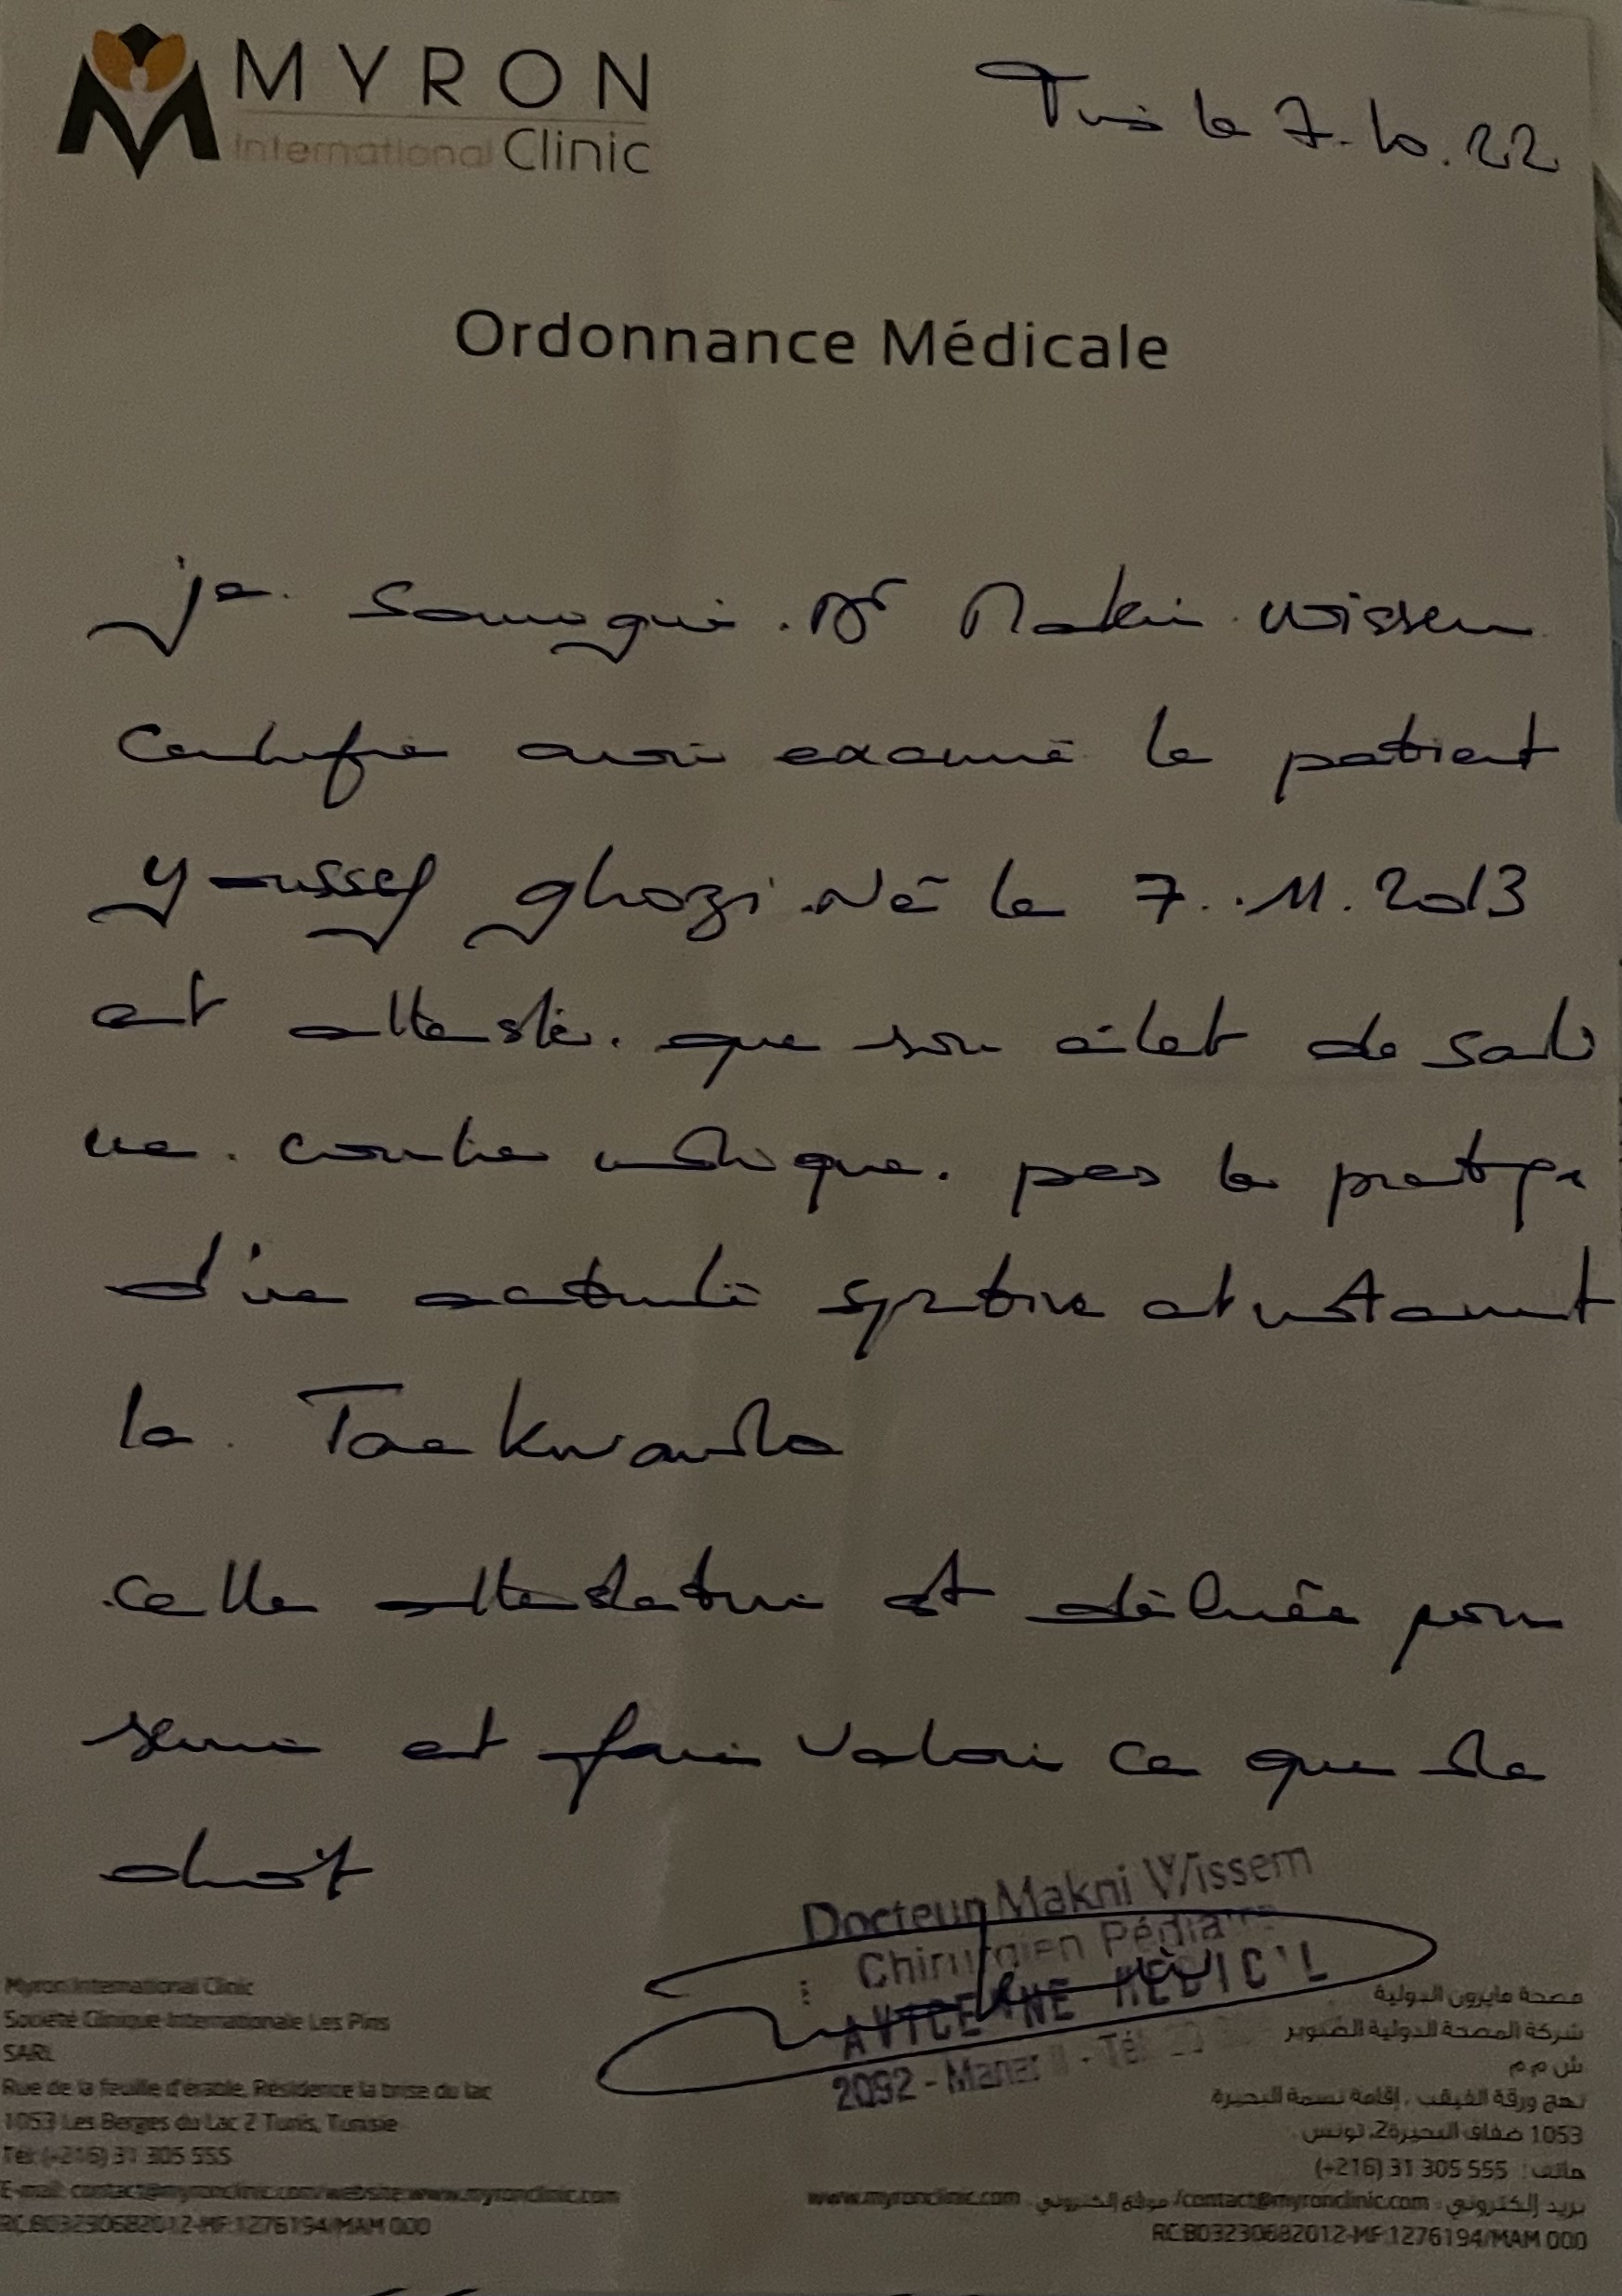 MYRON
International Clinic
Tunis le 7.10.22
Ordonnance Médicale
je soussigné. Dr Makni Wissem
certifie avoir examiné le patient
Youssef ghozi. Né le 7.11.2013
et atteste. que son état de santé
ne. contre indique. pas la pratique
d'une activité sportive et notamment
le. Taekwando
cette attestation est délivrée pour
servir et faire valoir ce que de
droit
Docteur Makni Wissem
Chirurgien Pédiatre
AVICENNE MEDICAL
2092 - Manar II - Tél
Myron International Clinic
Société Clinique Internationale Les Pins
SARL
Rue de la feuille d'érable, Résidence la brise du lac
1053 Les Berges du Lac 2 Tunis, Tunisie
Tél: (+216) 31 305 555
E-mail: contact@myronclinic.com/website:www.myronclinic.com
RC:B03230682012-MF:1276194/MAM 000
مصحة مايرون الدولية
شركة المصحة الدولية الصنوبر
ش م م
نهج ورقة القيقب ، إقامة نسمة البحيرة
1053 ضفاف البحيرة2، تونس
هاتف : 555 305 31 (216+)
بريد إلكتروني : contact@myronclinic.com/ موقع إلكتروني : www.myronclinic.com
RC:B03230682012-MF:1276194/MAM 000